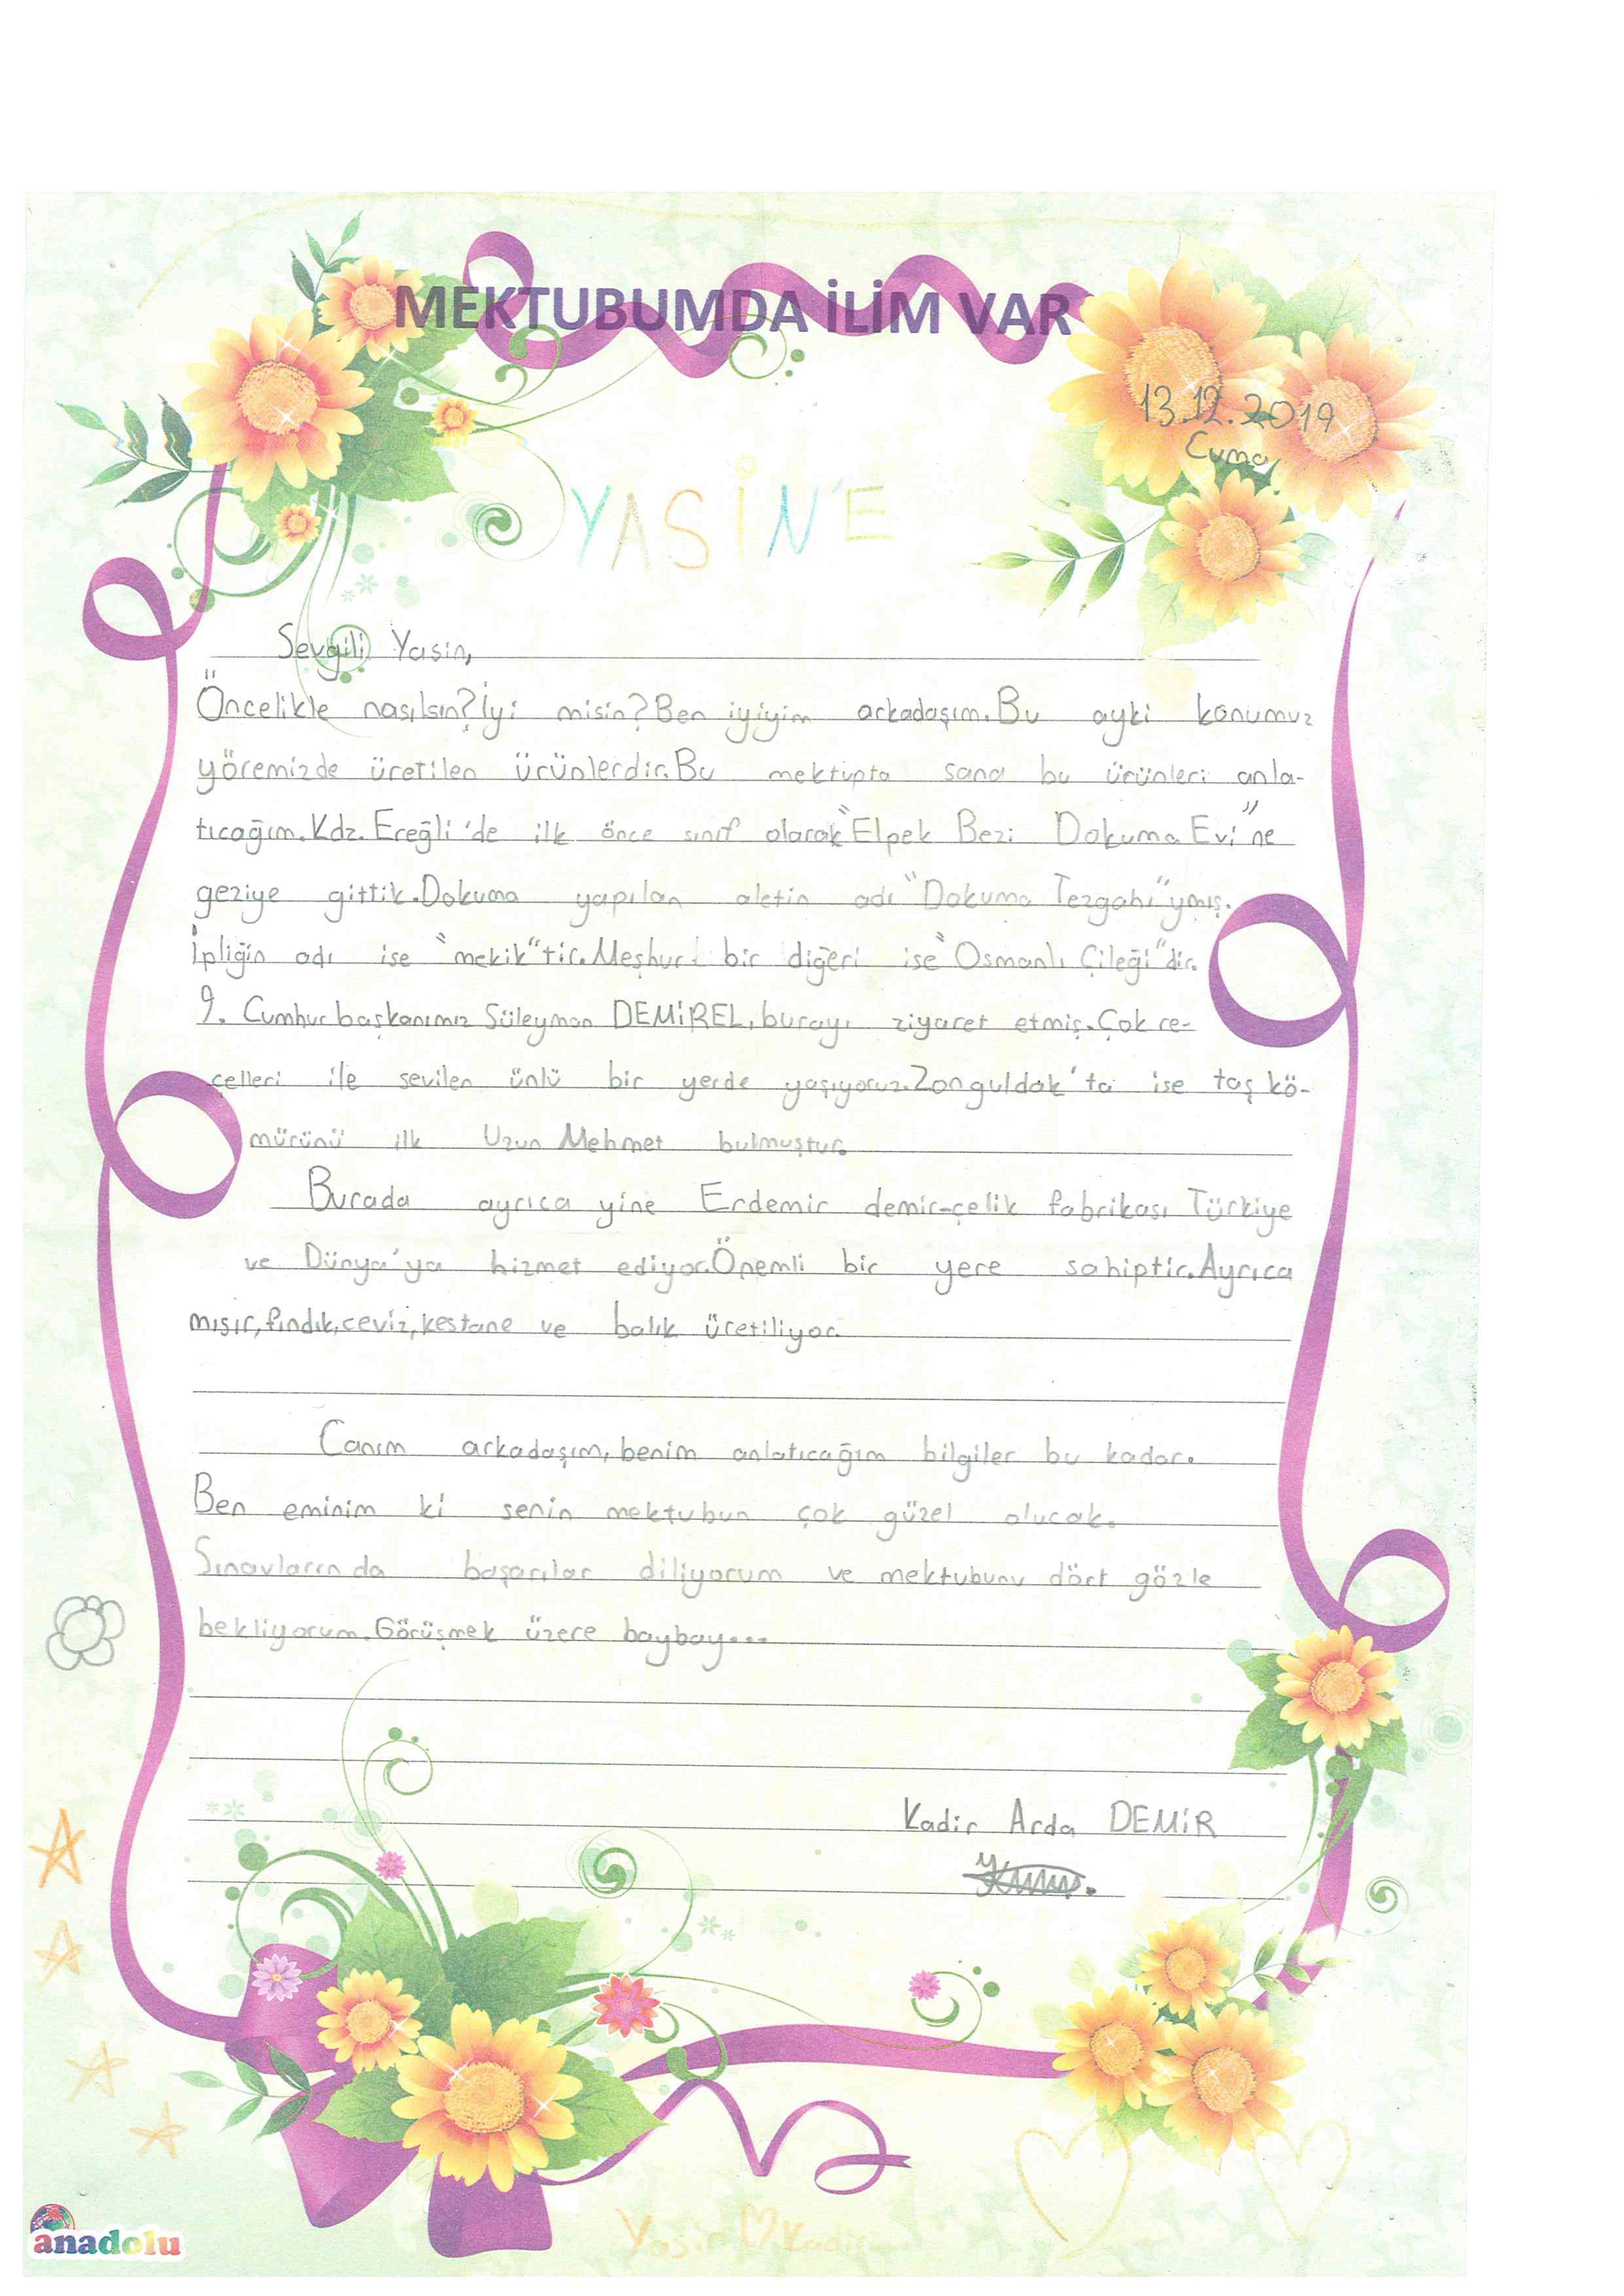 MEKTUBUMDA İLİM VAR
13.12.2019
Cuma
YASİN'E
Sevgili Yasin,
Öncelikle nasılsın?İyi misin?Ben iyiyim arkadaşım.Bu ayki konumuz
yöremizde üretilen ürünlerdir.Bu mektupta sana bu ürünleri anla-
tıcağım.Kdz.Ereğli'de ilk önce sınıf olarak "Elpek Bezi Dokuma Evi"ne
geziye gittik.Dokuma yapılan aletin adı "Dokuma Tezgahı"ymış.
İpliğin adı ise "mekik"tir.Meşhur bir diğeri ise "Osmanlı Çileği"dir.
9. Cumhurbaşkanımız Süleyman DEMİREL, burayı ziyaret etmiş.Çok re-
çelleri ile sevilen ünlü bir yerde yaşıyoruz.Zonguldak'ta ise taş kö-
mürünü ilk Uzun Mehmet bulmuştur.
Burada ayrıca yine Erdemir demir-çelik fabrikası Türkiye
ve Dünya'ya hizmet ediyor.Önemli bir yere sahiptir.Ayrıca
mısır,fındık,ceviz,kestane ve balık üretiliyor.
Canım arkadaşım, benim anlatıcağım bilgiler bu kadar.
Ben eminim ki senin mektubun çok güzel olucak.
Sınavlarında başarılar diliyorum ve mektubunu dört gözle
bekliyorum.Görüşmek üzere baybay...
Kadir Arda DEMİR
Yasin ♡ Kadir
anadolu